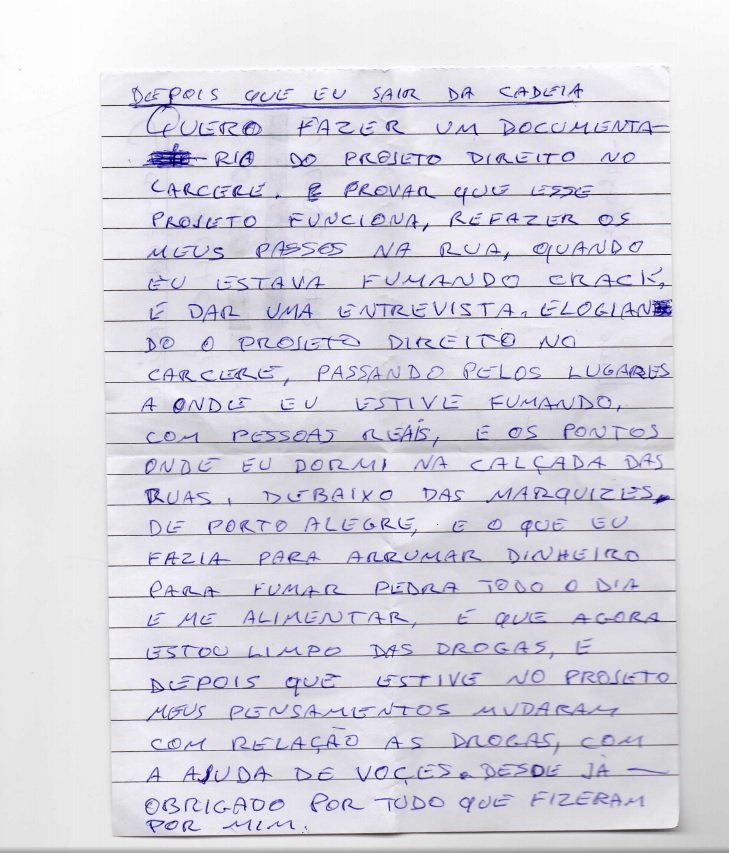 DEPOIS QUE EU SAIR DA CADEIA
QUERO FAZER UM DOCUMENTA-
RIO DO PROJETO DIREITO NO
CARCERE. E PROVAR QUE ESSE
PROJETO FUNCIONA, REFAZER OS
MEUS PASSOS NA RUA, QUANDO
EU ESTAVA FUMANDO CRACK,
E DAR UMA ENTREVISTA, ELOGIAN
DO O PROJETO DIREITO NO
CARCERE, PASSANDO PELOS LUGARES
A ONDE EU ESTIVE FUMANDO,
COM PESSOAS REAÍS, E OS PONTOS
ONDE EU DORMI NA CALÇADA DAS
RUAS, DEBAIXO DAS MARQUIZES,
DE PORTO ALEGRE, E O QUE EU
FAZIA PARA ARRUMAR DINHEIRO
PARA FUMAR PEDRA TODO O DIA
E ME ALIMENTAR, E QUE AGORA
ESTOU LIMPO DAS DROGAS, E
DEPOIS QUE ESTIVE NO PROJETO
MEUS PENSAMENTOS MUDARAM
COM RELAÇÃO AS DROGAS, COM
A AJUDA DE VOÇES. DESDE JÁ —
OBRIGADO POR TUDO QUE FIZERAM
POR MIM.